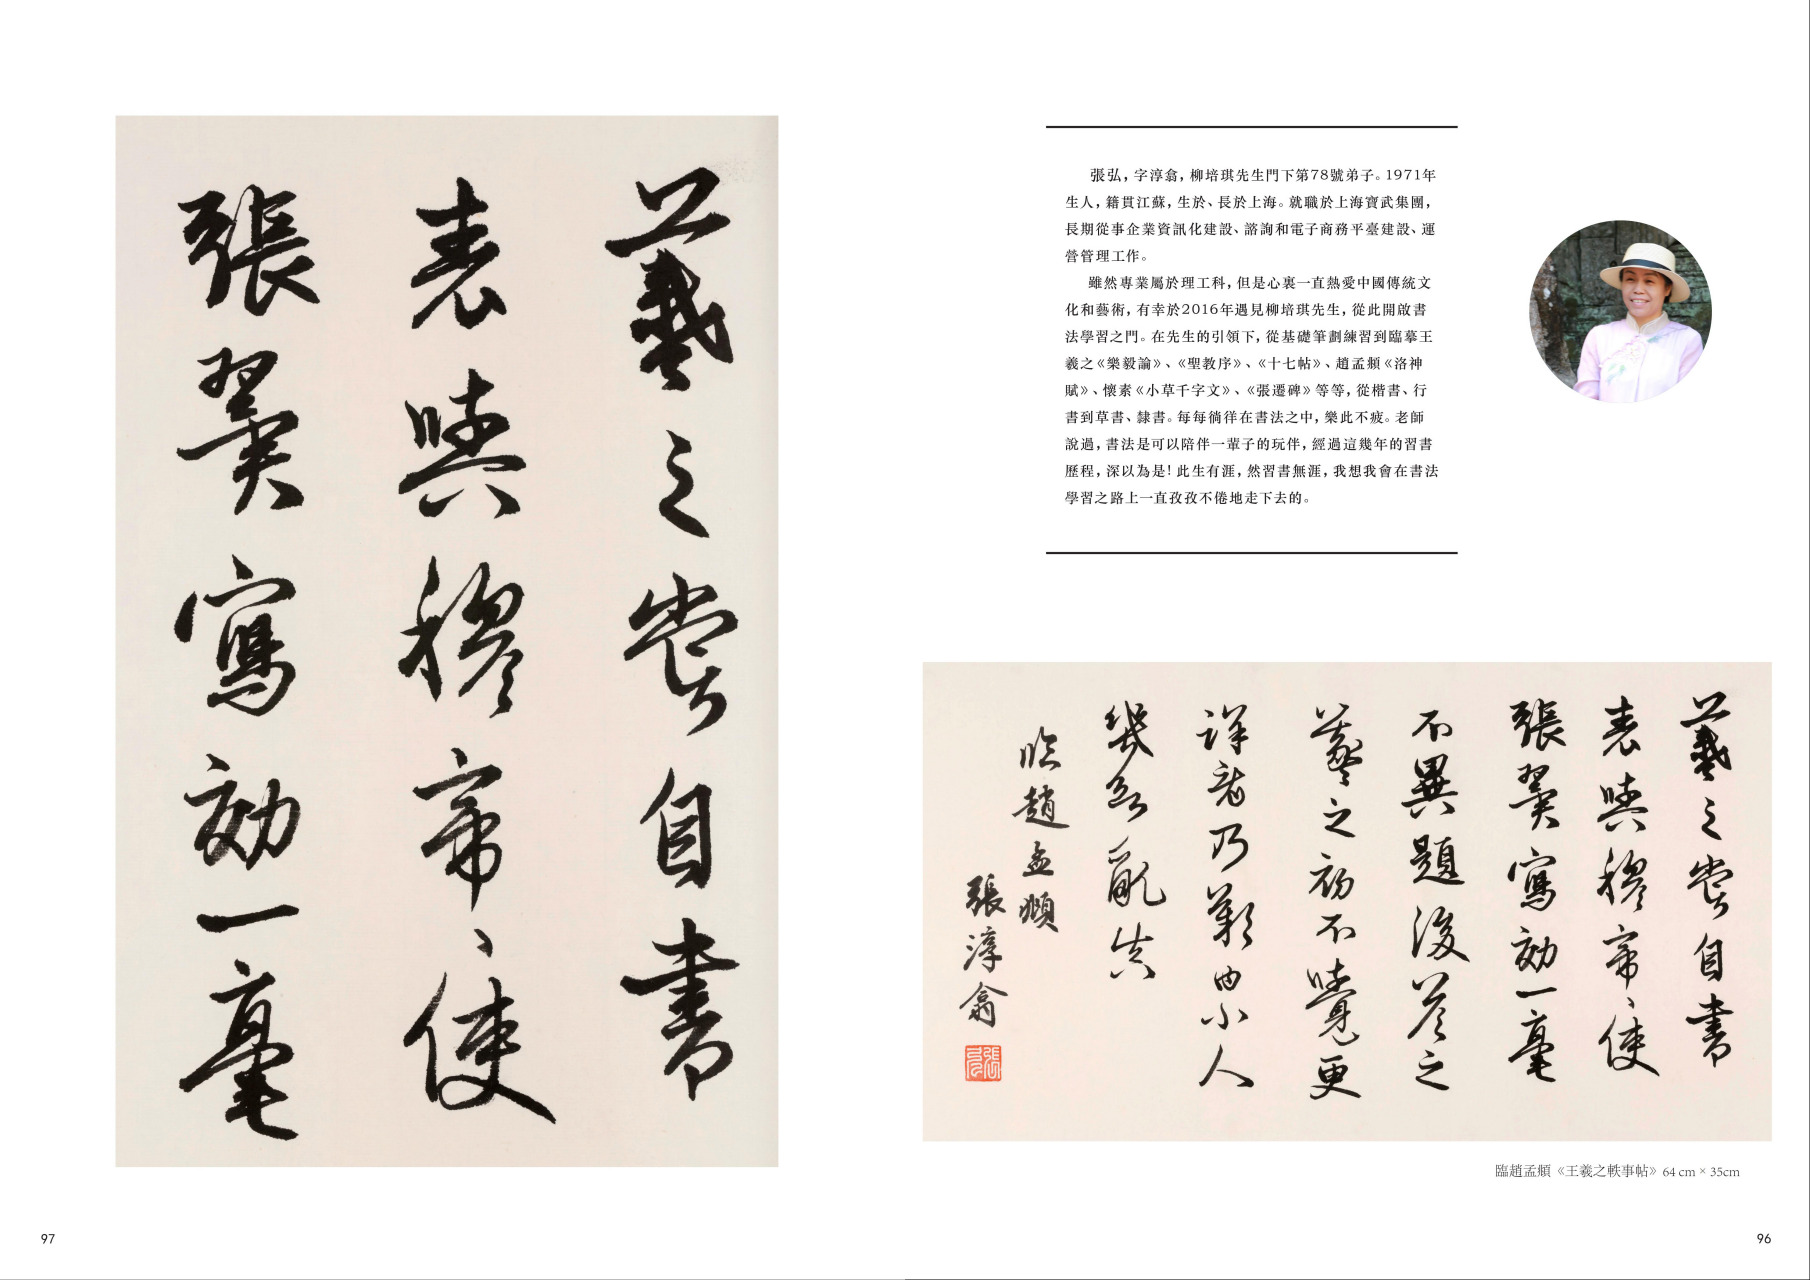 張弘，字淳翕，柳培琪先生門下第78號弟子。1971年
生人，籍貫江蘇，生於、長於上海。就職於上海寶武集團，
長期從事企業資訊化建設、諮詢和電子商務平臺建設、運
營管理工作。
雖然專業屬於理工科，但是心裏一直熱愛中國傳統文
化和藝術，有幸於2016年遇見柳培琪先生，從此開啟書
法學習之門。在先生的引領下，從基礎筆劃練習到臨摹王
羲之《樂毅論》、《聖教序》、《十七帖》、趙孟頫《洛神
賦》、懷素《小草千字文》、《張遷碑》等等，從楷書、行
書到草書、隸書。每每徜徉在書法之中，樂此不疲。老師
說過，書法是可以陪伴一輩子的玩伴，經過這幾年的習書
歷程，深以為是！此生有涯，然習書無涯，我想我會在書法
學習之路上一直孜孜不倦地走下去的。
羲之嘗自書
表與穆帝、使
張翼寫効一毫
不異題後答之
羲之初不曉覺更
詳看乃歎曰小人
幾欲亂真
臨趙孟頫
張淳翕
張弘
臨趙孟頫《王羲之軼事帖》64 cm × 35cm
96
羲之嘗自書
表與穆帝、使
張翼寫効一毫
97